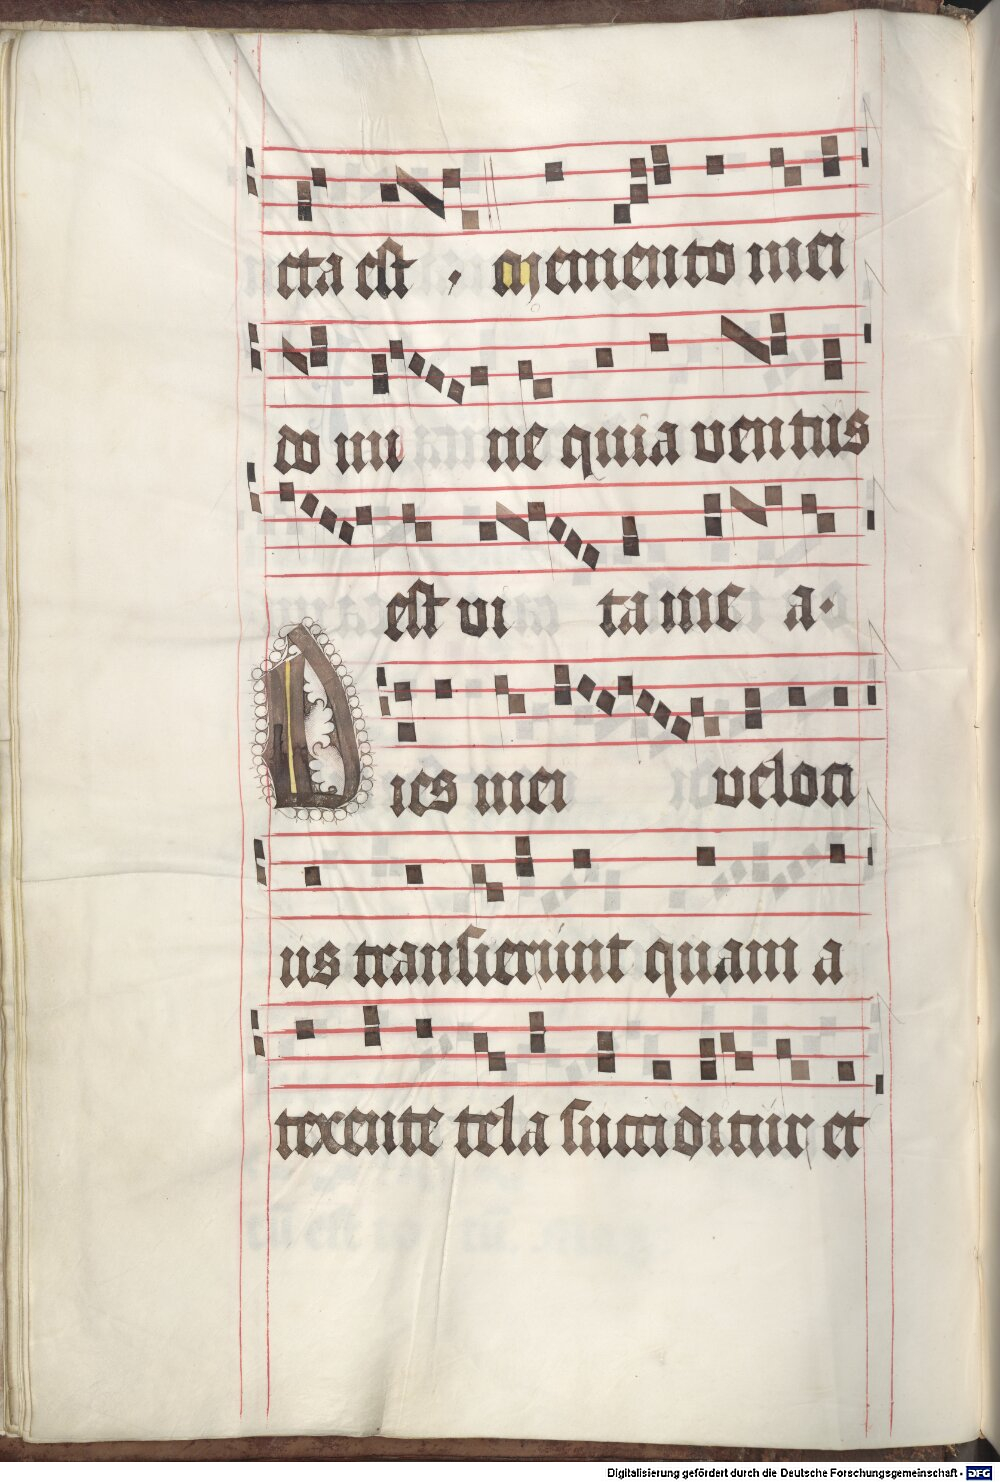 cta est . Memento mei
do mi ne quia ventus
est vi ta me a.
Dies mei veloci
us transierunt quam a
texente tela succiditur et
Digitalisierung gefördert durch die Deutsche Forschungsgemeinschaft - DFG